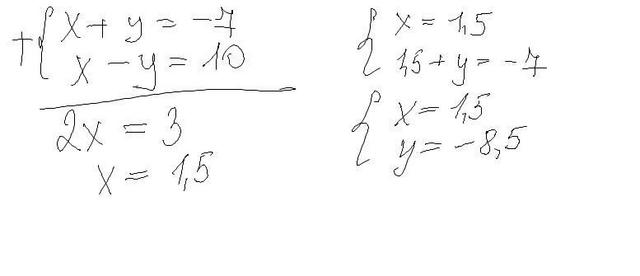 + { x + y = -7
x - y = 10
2x = 3
x = 1,5
{ x = 1,5
1,5 + y = -7
{ x = 1,5
y = -8,5